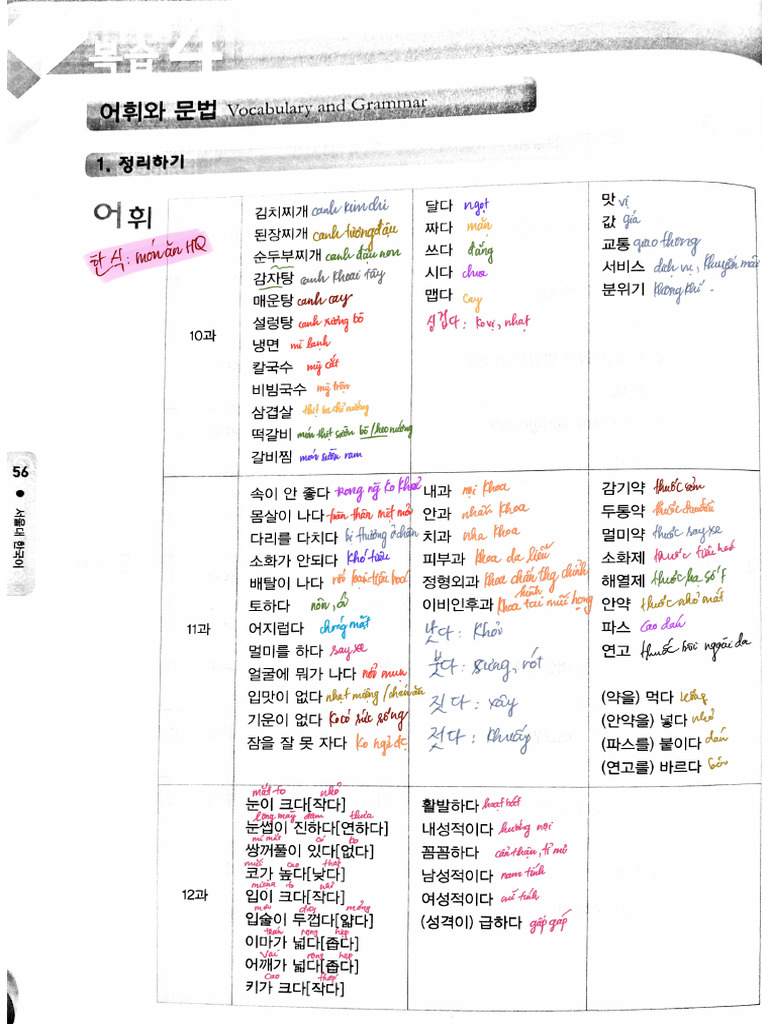 복습 4
어휘와 문법 Vocabulary and Grammar
1. 정리하기
어휘
한식: món ăn HQ
10과
김치찌개 canh kim chi
된장찌개 canh tương đậu
순두부찌개 canh đậu non
감자탕 canh khoai tây
매운탕 canh cay
설렁탕 canh xương bò
냉면 mì lạnh
칼국수 mỳ cắt
비빔국수 mỳ trộn
삼겹살 thịt ba chỉ nướng
떡갈비 món thịt sườn bò/heo nướng
갈비찜 món sườn ram
달다 ngọt
짜다 mặn
쓰다 đắng
시다 chua
맵다 cay
싱겁다: ko vị, nhạt
맛 vị
값 giá
교통 giao thông
서비스 dịch vụ, khuyến mãi
분위기 không khí
11과
속이 안 좋다 trong ng ko khoẻ
몸살이 나다 toàn thân mệt mỏi
다리를 다치다 bị thương ở chân
소화가 안되다 khó tiêu
배탈이 나다 rối loạn tiêu hoá
토하다 nôn, ói
어지럽다 chóng mặt
멀미를 하다 say xe
얼굴에 뭐가 나다 nổi mụn
입맛이 없다 nhạt miệng / chán ăn
기운이 없다 ko có sức sống
잠을 잘 못 자다 ko ngủ đc
내과 nội khoa
안과 nhãn khoa
치과 nha khoa
피부과 khoa da liễu
정형외과 khoa chấn thg chỉnh hình
이비인후과 khoa tai mũi họng
낫다: khỏi
붓다: sưng, rót
짓다: xây
젓다: khuấy
감기약 thuốc cảm
두통약 thuốc đau đầu
멀미약 thuốc say xe
소화제 thuốc tiêu hoá
해열제 thuốc hạ sốt
안약 thuốc nhỏ mắt
파스 cao dán
연고 thuốc bôi ngoài da
(약을) 먹다 uống
(안약을) 넣다 nhỏ
(파스를) 붙이다 dán
(연고를) 바르다 bôi
12과
mắt to nhỏ
눈이 크다[작다]
lông mày đậm thưa
눈썹이 진하다[연하다]
mí mắt có ko
쌍꺼풀이 있다[없다]
mũi cao thấp
코가 높다[낮다]
miệng to nhỏ
입이 크다[작다]
môi dày mỏng
입술이 두껍다[얇다]
trán rộng hẹp
이마가 넓다[좁다]
vai rộng hẹp
어깨가 넓다[좁다]
cao thấp
키가 크다[작다]
활발하다 hoạt bát
내성적이다 hướng nội
꼼꼼하다 cẩn thận, tỉ mỉ
남성적이다 nam tính
여성적이다 nữ tính
(성격이) 급하다 gấp gáp
56
서울대 한국어